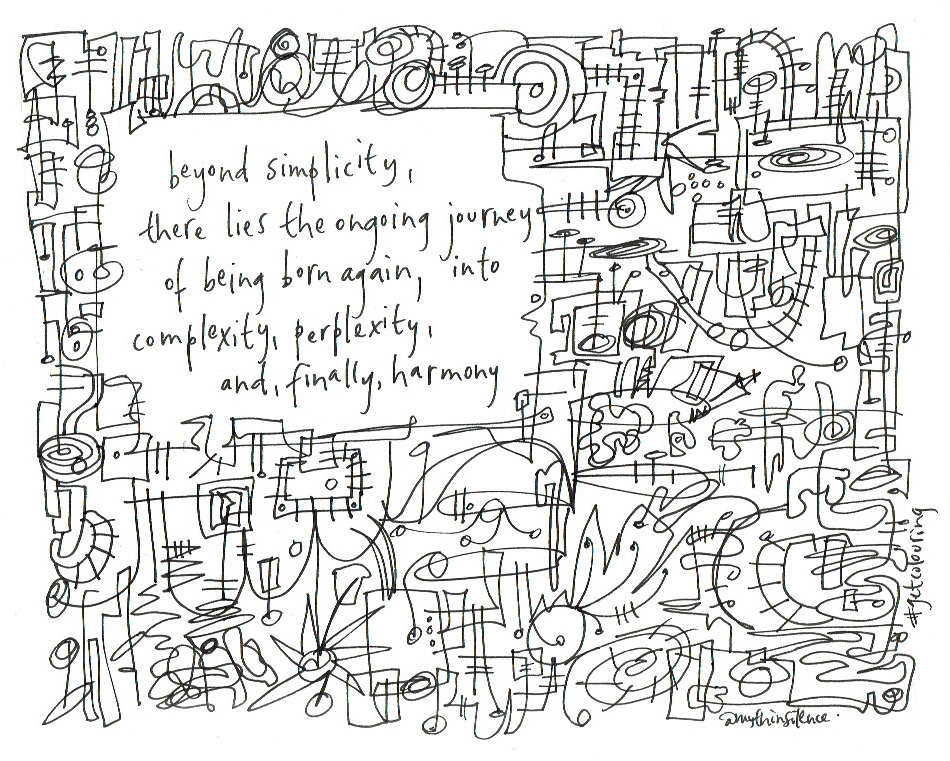 beyond simplicity,
there lies the ongoing journey
of being born again, into
complexity, perplexity,
and, finally, harmony
#getcolouring
amythinsilence.